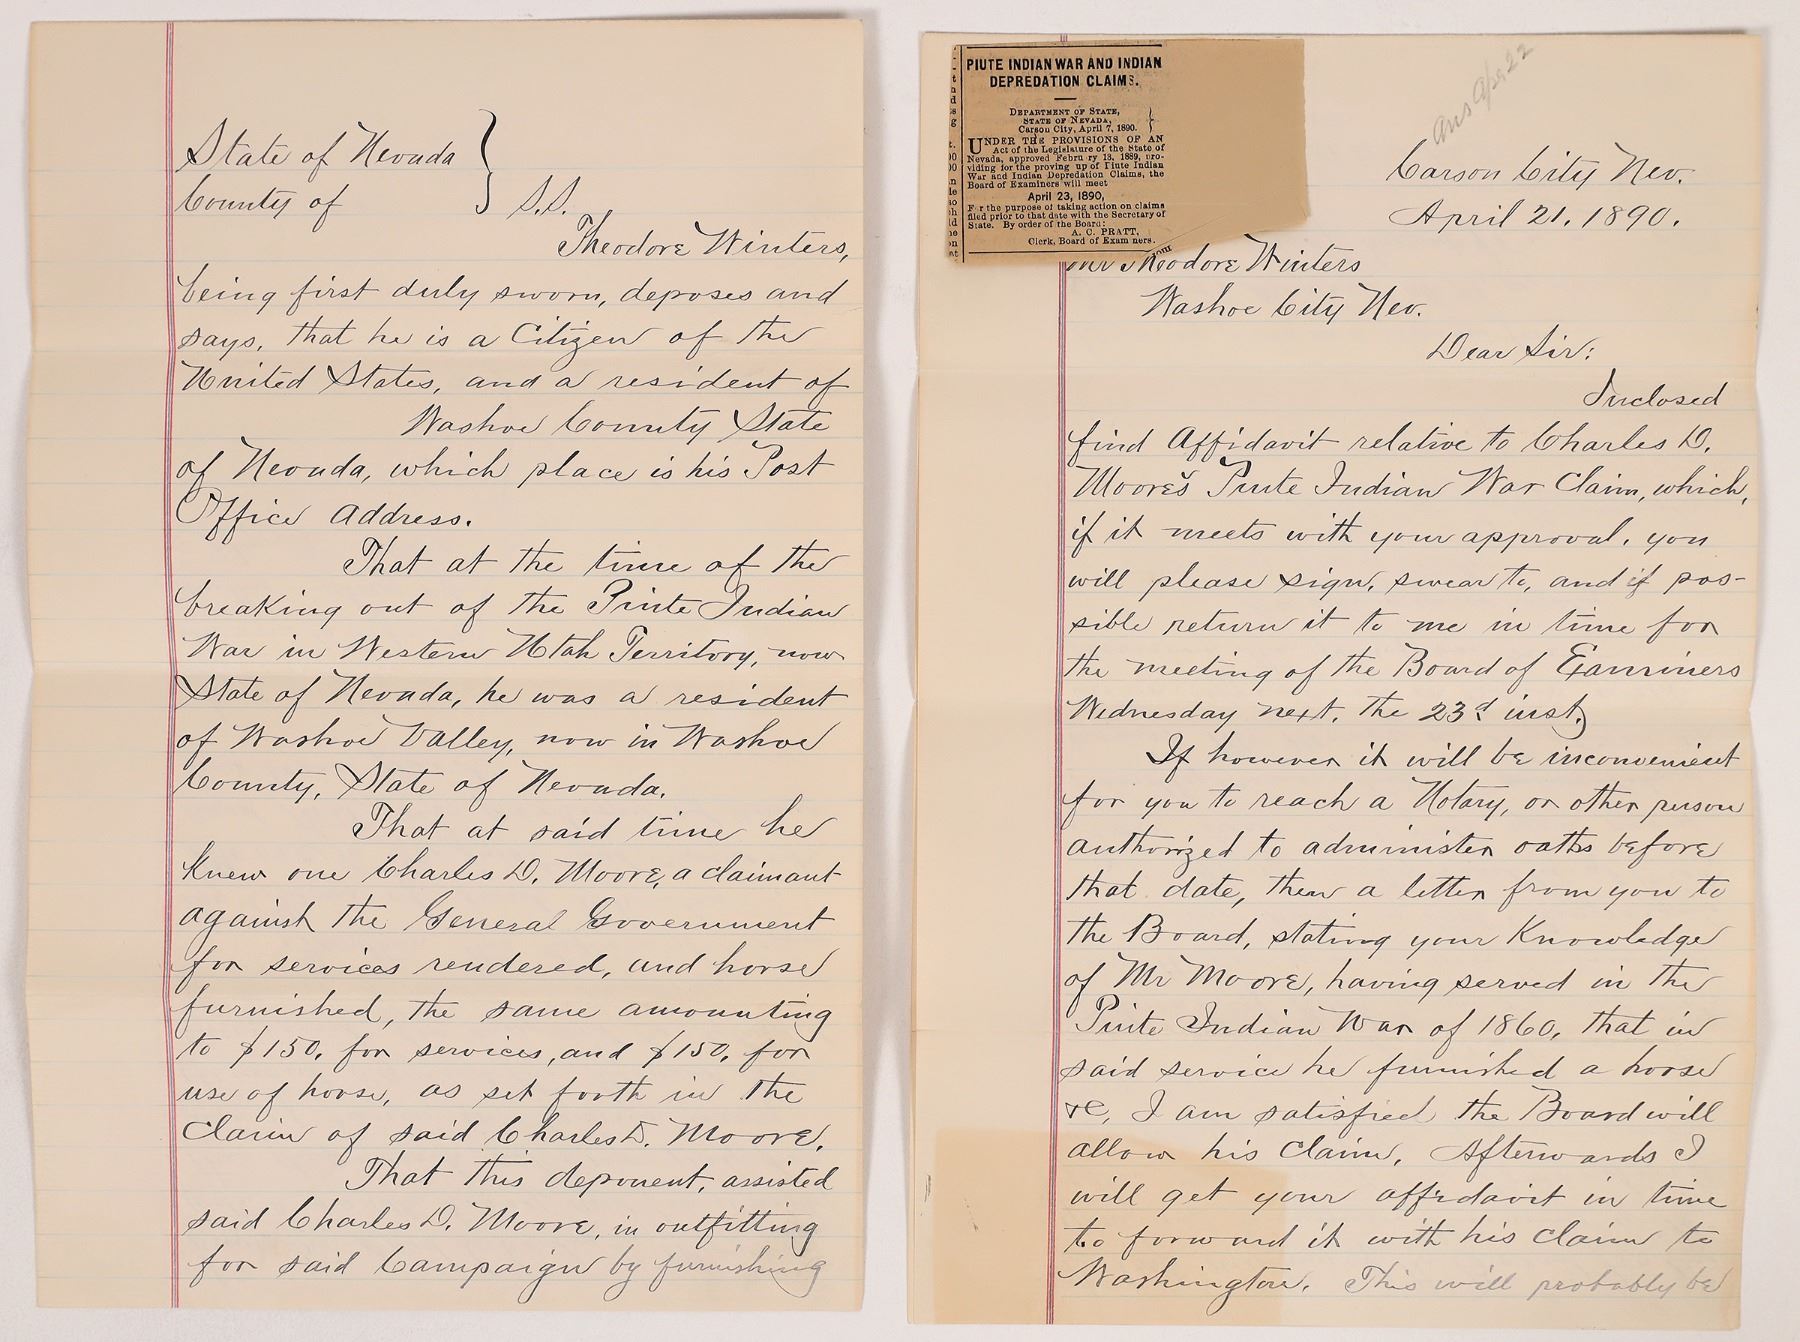 State of Nevada
County of } S.S.
Theodore Winters,
being first duly sworn, deposes and
says, that he is a Citizen of the
United States, and a resident of
Washoe County State
of Nevada, which place is his Post
Office address.
That at the time of the
breaking out of the Piute Indian
War in Western Utah Territory, now
State of Nevada, he was a resident
of Washoe Valley, now in Washoe
County, State of Nevada.
That at said time he
knew one Charles D. Moore, a claimant
against the General Government
for services rendered, and horse
furnished, the same amounting
to $150. for services, and $150. for
use of horse, as set forth in the
Claim of said Charles D. Moore.
That this deponent, assisted
said Charles D. Moore, in outfitting
for said Campaign by furnishing
PIUTE INDIAN WAR AND INDIAN
DEPREDATION CLAIMS.
DEPARTMENT OF STATE,
STATE OF NEVADA,
Carson City, April 7, 1890. }
UNDER THE PROVISIONS OF AN
Act of the Legislature of the State of
Nevada, approved Febru ry 13, 1889, pro-
viding for the proving up of Piute Indian
War and Indian Depredation Claims, the
Board of Examiners will meet
April 23, 1890,
For the purpose of taking action on claims
filed prior to that date with the Secretary of
State. By order of the Board:
A. C. PRATT,
Clerk, Board of Exam ners.
Ans Apr 22
Carson City Nev.
April 21. 1890.
Mr Theodore Winters
Washoe City Nev.
Dear Sir:
Inclosed
find Affidavit relative to Charles D.
Moore's Piute Indian War Claim, which,
if it meets with your approval, you
will please sign, swear to, and if pos-
sible return it to me in time for
the meeting of the Board of Examiners
Wednesday next, the 23d inst.
If however it will be inconvenient
for you to reach a Notary, or other person
authorized to administer oaths before
that date, then a letter from you to
the Board, stating your Knowledge
of Mr Moore, having served in the
Piute Indian War of 1860, that in
said service he furnished a horse
&c, I am satisfied the Board will
allow his Claim. Afterwards I
will get your affidavit in time
to forward it with his Claim to
Washington. This will probably be